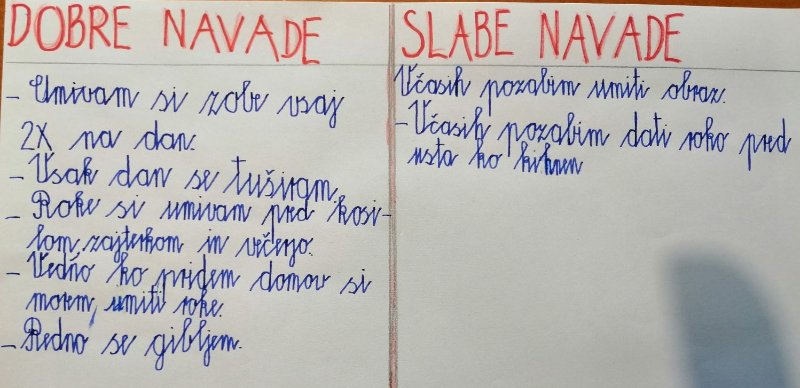 DOBRE NAVADE
- Umivam si zobe vsaj
2X na dan.
- Vsak dan se tuširam.
- Roke si umivam pred kosi-
lom, zajterkom in večerjo.
- Vedno ko pridem domov si
morem umiti roke.
- Redno se gibljem.
SLABE NAVADE
Včasih pozabim umiti obraz.
- Včasih pozabim dati roko pred
usta ko kihnem